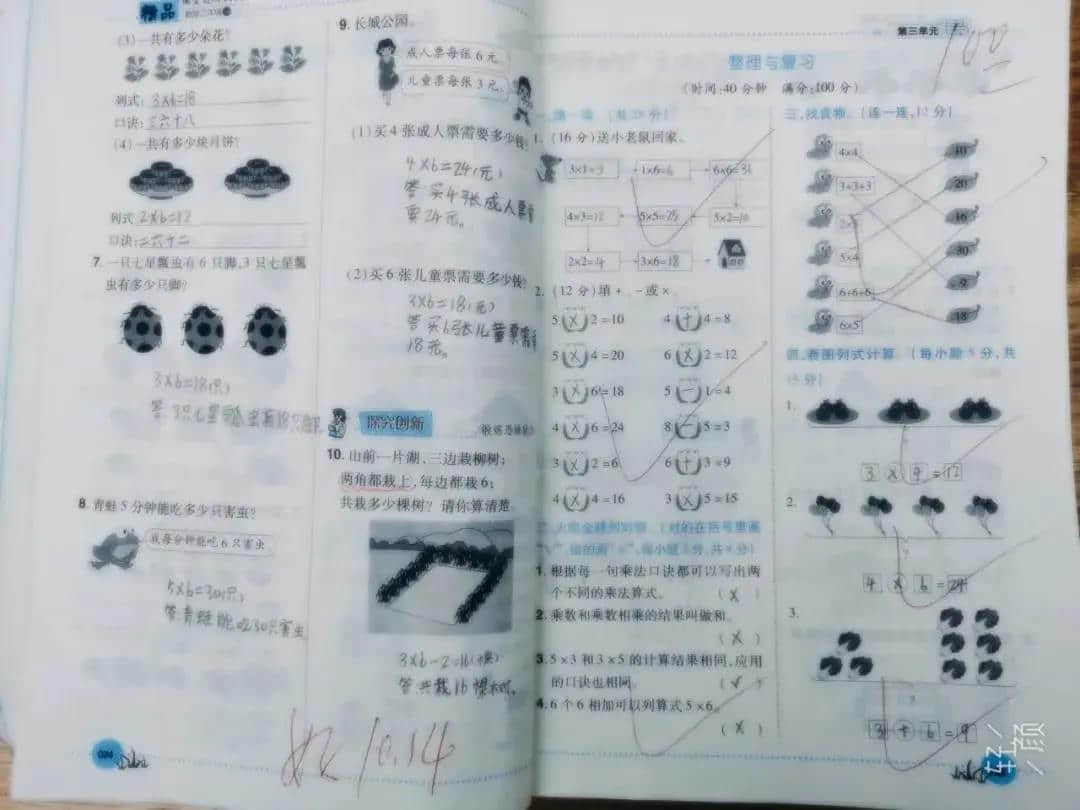 精品
(3)一共有多少朵花?
列式: 3×6=18
口诀: 三六十八
(4)一共有多少块月饼?
列式 2×6=12
口诀: 二六十二
7. 一只七星瓢虫有6只脚,3只七星瓢
虫有多少只脚?
3×6=18(只)
8. 青蛙5分钟能吃多少只害虫?
我每分钟能吃6只害虫
5×6=30(只)
答:青蛙能吃30只害虫
024
9. 长城公园。
成人票每张6元。
儿童票每张3元。
(1)买4张成人票需要多少钱?
4×6=24(元)
答:买4张成人票
要24元。
(2)买6张儿童票需要多少钱?
3×6=18(元)
答:买6张儿童票需
18元。
探究创新
10. 山前一片湖,三边栽柳树;
两角都栽上,每边都栽6;
共栽多少棵树? 请你算清楚。
3×6-2=16(棵)
答:共栽16棵树。
10.14
第三单元
100
整理与复习
(时间:40分钟 满分:100分)
1. (16分)送小老鼠回家。
3×1=3 1×6=6 6×6=36
4×3=12 5×5=25 5×2=10
2×2=4 3×6=18
2. (12分)填+、-或×。
5(×)2=10 4(+)4=8
5(×)4=20 6(×)2=12
3(×)6=18 5(-)1=4
4(×)6=24 8(-)5=3
3(×)2=6 6(+)3=9
4(×)4=16 3(×)5=15
1. 根据每一句乘法口诀都可以写出两
个不同的乘法算式。 (×)
2. 乘数和乘数相乘的结果叫做和。
(×)
3. 5×3和3×5的计算结果相同,应用
的口诀也相同。 (√)
4. 6个6相加可以列算式5×6。
(×)
三、找食物。(连一连,12分)
4×4 10
3+3+3 20
2×5 16
5×4 30
6+6+6 9
6×5 18
四、看图列式计算。(每小题5分,共
15分)
1.
3×4=12
2.
?
4×6=24
3.
?
3+6=9
轻颜